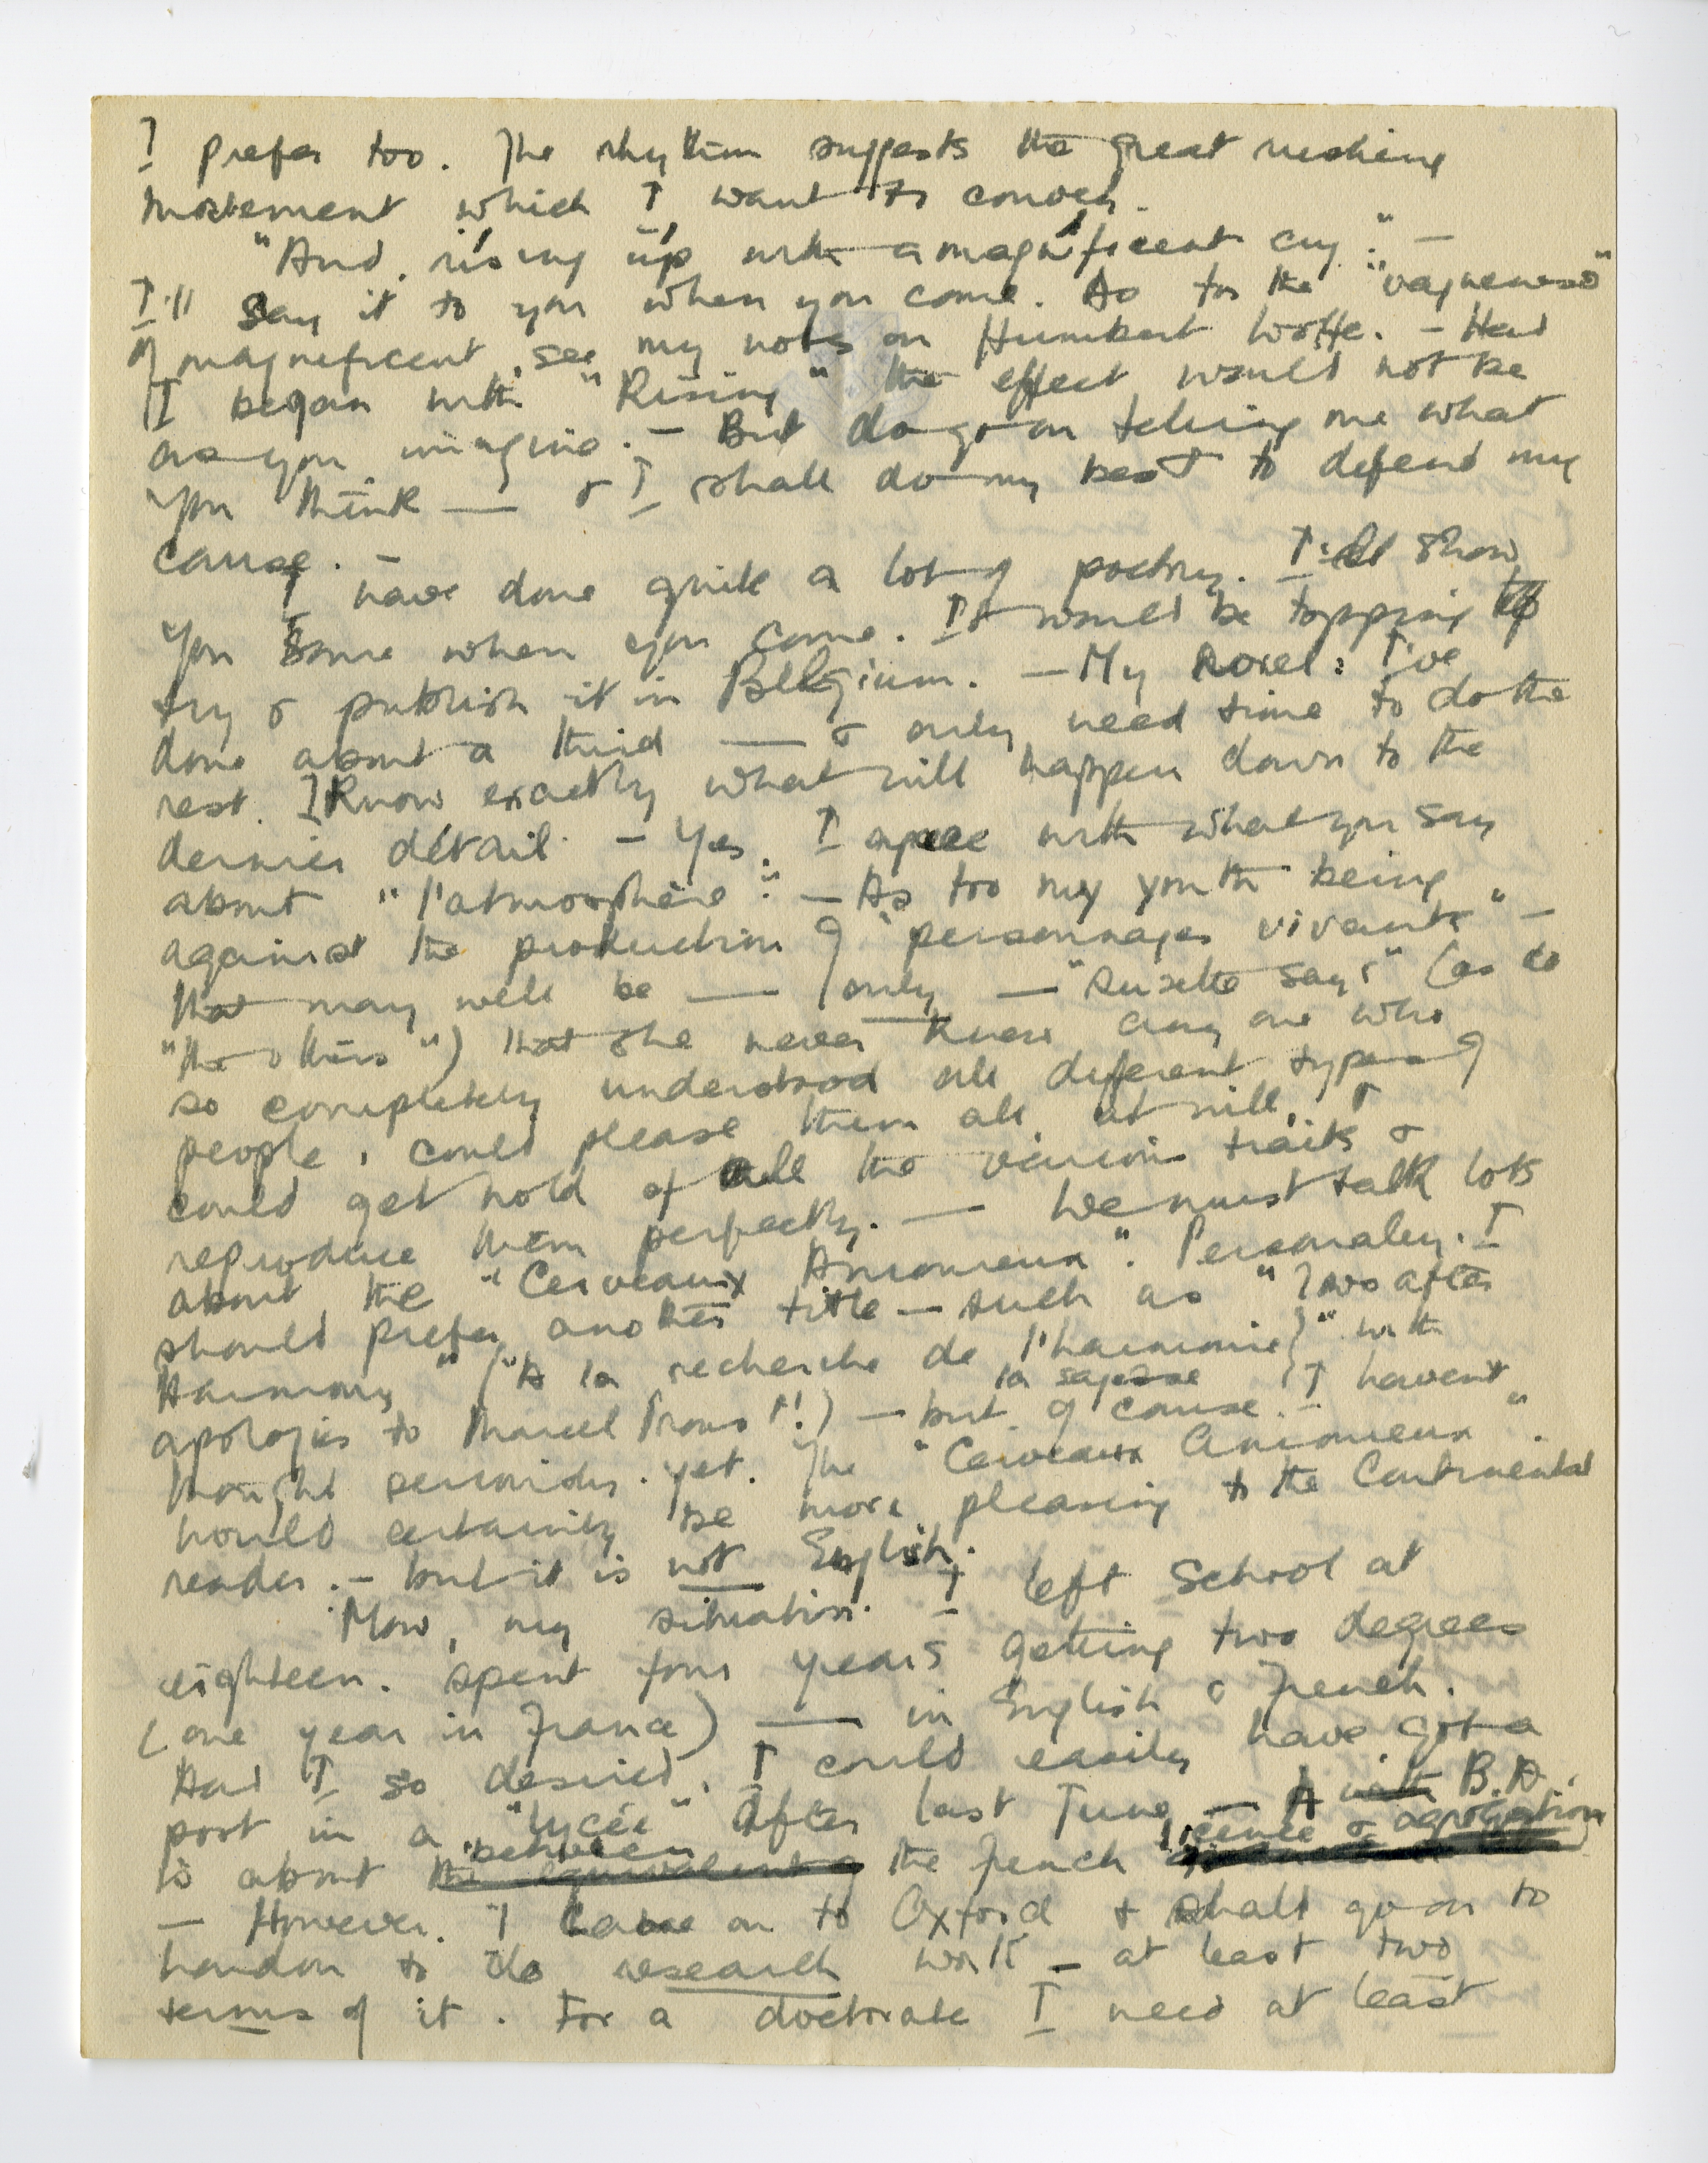 I prefer too. The rhythm suggests the great rushing
movement which I want to convey.
"And, rísing úp with a magníficent cry": —
I'll say it to you when you come. As for the "vagueness"
of magnificent, see my notes on Humbert Wolfe. — Had
I began with "Rising" the effect would not be
as you imagine. — But do go on telling me what
you think — & I shall do my best to defend my
cause. —
I have done quite a lot of poetry. I'll show
you some when you come. It would be topping to
try & publish it in Belgium. — My novel: I've
done about a third — & only need time to do the
rest. I know exactly what will happen down to the
dernier détail. — Yes, I agree with what you say
about "l'atmosphère". — As too my youth being
against the production of "personnages vivants" —
that may well be — (only — "Suzette says" (as do
"the others") that she never knew any one who
so completely understood all different types of
people, could please them all at will, &
could get hold of all the various traits &
reproduce them perfectly. — We must talk lots
about the "Cerveaux Amoureux". Personaley, I
should prefer another title — such as "Two after
Harmony" ("A la recherche de l'harmonie)" with
la sagesse
apologies to Marcel Proust!!) — but of course, I havent
thought seriously yet. The "Cerveaux Amoureux"
would certainly be more pleasing to the Continental
reader. — but it is not English.
Now, my situation. I left school at
eighteen. Spent four years getting two degrees
(one year in France) — in English & French.
Had I so desired, I could easily have got a
post in a "lycée" after last June — A with B.A.
is about the equivalent of between the French "licence & agrégation
— However, I came on to Oxford & shall go on to
London to do research work — at least two
terms of it. For a doctorate I need at least